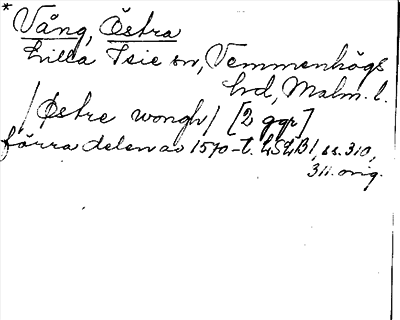 * Vång, Östra
Lilla Isie sn, Vemmenhögs
hd, Malm. l.
/ Østre wongh / [2 ggr]
förra delen av 1570-t. LSLB1, ss. 310,
311. orig.